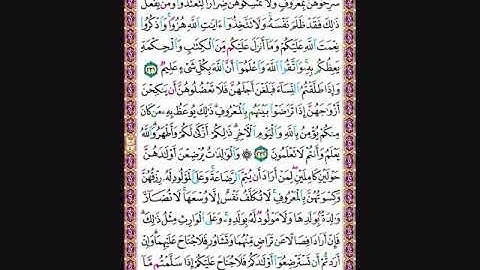 سَرِّحُوهُنَّ بِمَعْرُوفٍ وَلَا تُمْسِكُوهُنَّ ضِرَارًا لِّتَعْتَدُوا۟ وَمَن يَفْعَلْ
ذَٰلِكَ فَقَدْ ظَلَمَ نَفْسَهُۥ وَلَا تَتَّخِذُوٓا۟ ءَايَٰتِ ٱللَّهِ هُزُوًا وَٱذْكُرُوا۟
نِعْمَتَ ٱللَّهِ عَلَيْكُمْ وَمَآ أَنزَلَ عَلَيْكُم مِّنَ ٱلْكِتَٰبِ وَٱلْحِكْمَةِ
يَعِظُكُم بِهِۦ وَٱتَّقُوا۟ ٱللَّهَ وَٱعْلَمُوٓا۟ أَنَّ ٱللَّهَ بِكُلِّ شَىْءٍ عَلِيمٌ ٢٣١
وَإِذَا طَلَّقْتُمُ ٱلنِّسَآءَ فَبَلَغْنَ أَجَلَهُنَّ فَلَا تَعْضُلُوهُنَّ أَن يَنكِحْنَ
أَزْوَٰجَهُنَّ إِذَا تَرَٰضَوْا۟ بَيْنَهُم بِٱلْمَعْرُوفِ ذَٰلِكَ يُوعَظُ بِهِۦ مَن كَانَ
مِنكُمْ يُؤْمِنُ بِٱللَّهِ وَٱلْيَوْمِ ٱلْءَاخِرِ ذَٰلِكُمْ أَزْكَىٰ لَكُمْ وَأَطْهَرُ وَٱللَّهُ
يَعْلَمُ وَأَنتُمْ لَا تَعْلَمُونَ ٢٣٢ ۞ وَٱلْوَٰلِدَٰتُ يُرْضِعْنَ أَوْلَٰدَهُنَّ
حَوْلَيْنِ كَامِلَيْنِ لِمَنْ أَرَادَ أَن يُتِمَّ ٱلرَّضَاعَةَ وَعَلَى ٱلْمَوْلُودِ لَهُۥ رِزْقُهُنَّ
وَكِسْوَتُهُنَّ بِٱلْمَعْرُوفِ لَا تُكَلَّفُ نَفْسٌ إِلَّا وُسْعَهَا لَا تُضَآرَّ
وَٰلِدَةٌۢ بِوَلَدِهَا وَلَا مَوْلُودٌ لَّهُۥ بِوَلَدِهِۦ وَعَلَى ٱلْوَارِثِ مِثْلُ ذَٰلِكَ
فَإِنْ أَرَادَا فِصَالًا عَن تَرَاضٍ مِّنْهُمَا وَتَشَاوُرٍ فَلَا جُنَاحَ عَلَيْهِمَا وَإِنْ
أَرَدتُّمْ أَن تَسْتَرْضِعُوٓا۟ أَوْلَٰدَكُمْ فَلَا جُنَاحَ عَلَيْكُمْ إِذَا سَلَّمْتُم مَّآ